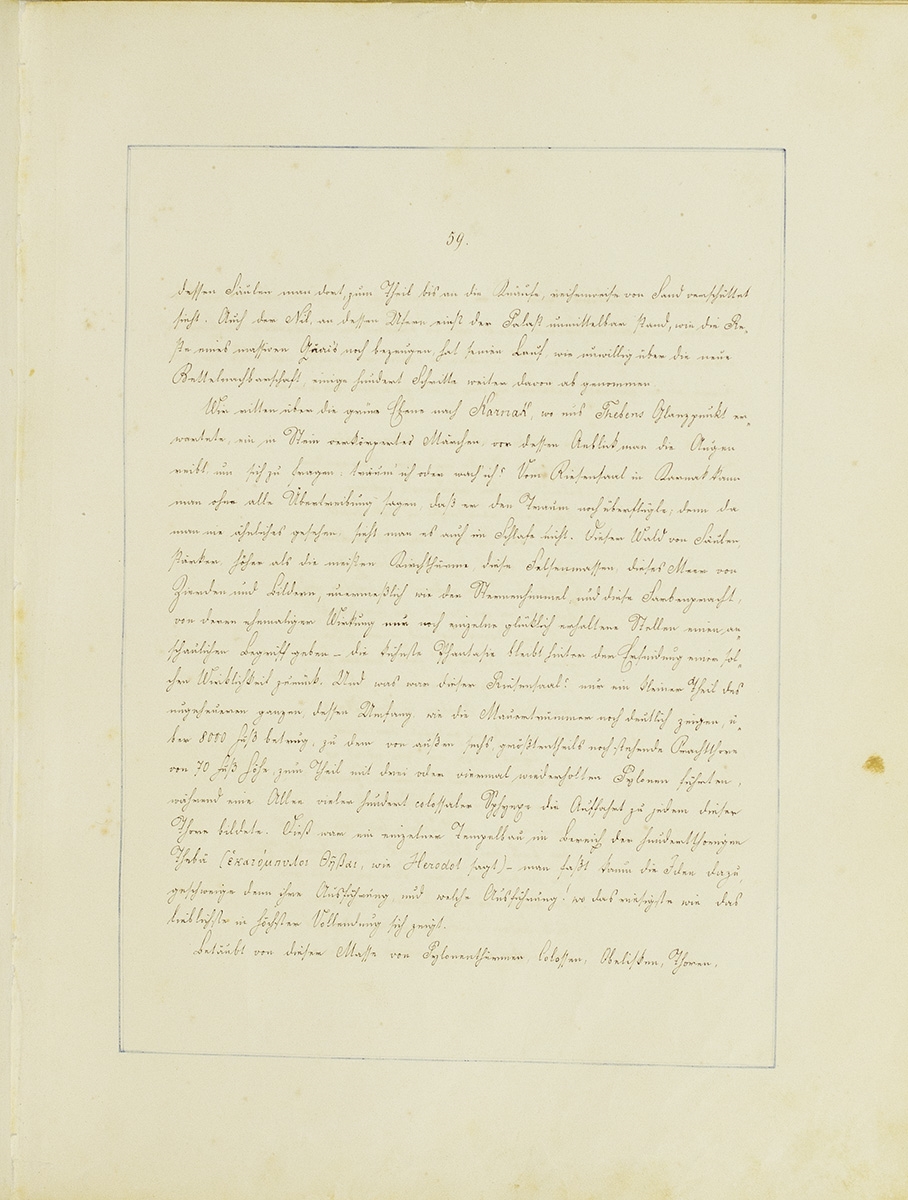 59.
dessen Säulen man dort, zum Theil bis an die Knäufe, reihenweise von Sand verschüttet
sieht. Auch der Nil, an dessen Ufern einst der Palast unmittelbar stand, wie die Re-
ste eines massiven Quais noch bezeugen hat seinen Lauf wie unwillig über die neue
Bettelnachbarschaft, einige hundert Schritte weiter davon ab genommen
Wir ritten über die grüne Ebene nach Karnak, wo uns Thebens Glanzpunkt er-
wartete, ein in Stein verkörpertes Märchen, vor dessen Anblick man die Augen
reibt, um sich zu fragen: träum' ich oder wach ich? Vom Riesensaal in Karnak kann
man ohne alle Übertreibung sagen, daß er den Traum noch überflügle; denn da
man nie ähnliches gesehen, sieht man es auch im Schlafe nicht. Dieser Wald von Säulen
stärker, höher als die meisten Kirchthürme, diese Felsenmassen, dieses Meer von
Zierden und Bildern, unermeßlich wie der Sternenhimmel, und diese Farbenpracht,
von deren ehmaliger Wirkung nur noch einzelne glücklich erhaltene Stellen einen an-
schaulichen Begriff geben – die kühnste Phantasie bleibt hinter der Erfindung einer sol-
chen Wirklichkeit zurück. Und was war dieser Riesensaal? nur ein kleiner Theil des
ungeheueren ganzen, dessen Umfang, wie die Mauertrümmer noch deutlich zeigen, ü-
ber 8000 Fuß betrug, zu dem von außen sechs, größtentheils noch stehende Prachtthore
von 70 Fuß Höhe, zum Theil mit drei oder viermal wiederholten Pylonen führten,
während eine Allee vieler hundert colossaler Sphynxe die Auffahrt zu jedem dieser
Thore bildete. Dieß war ein einzelner Tempelbau im Bereich der hundertthorigen
Thebä (ἑκατόμπυλοι Θῆβαι, wie Herodot sagt) – man faßt kaum die Idee dazu,
geschweige denn ihre Ausführung, und welche Ausführung! wo das riesigste wie das
lieblichste in höchster Vollendung sich zeigt.
Betäubt von dieser Masse von Pylonenthürmen, Colossen, Obelisken, Thoren,